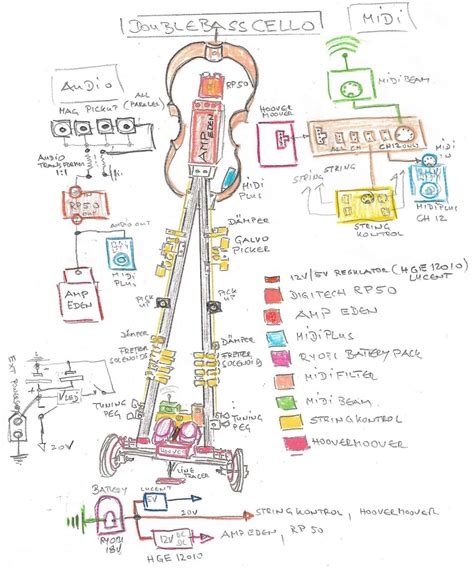 DOUBLEBASSCELLO
MIDI
AUDIO
MAG PICKUP
ALL
(PARALLEL)
AUDIO
TRANSFORMER
1:1
RP50
OUT
AUDIO OUT
MIDI
PLUS
AMP
EDEN
RP50
AMP EDEN
MIDI
PLUS
HOOVER
MOOVER
MIDI BEAM
MIDI
IN
ALL CH
CH12 ONLY
STRING
STRING
STRING
KONTROL
MIDIPLUS
CH 12
DÄMPER
GALVO
PICKER
PICK
UP
PICK
UP
DÄMPER
FRETER
SOLENOIDS
DÄMPER
FRETER
SOLENOID
TUNING
PEG
TUNING
PEG
HOOVER
LINE
TRACER
EXT POWER
20V
12V/5V REGULATOR (HGE 12010)
LUCENT
DIGITECH RP50
AMP EDEN
MIDIPLUS
RYOBI BATTERY PACK
MIDIFILTER
MIDI BEAM
STRINGKONTROL
HOOVERMOOVER
BATTERY
RYOBI
18V
LUCENT
5V
20V
STRINGKONTROL, HOOVERMOOVER
12V DC/DC
HGE 12010
AMP EDEN, RP50